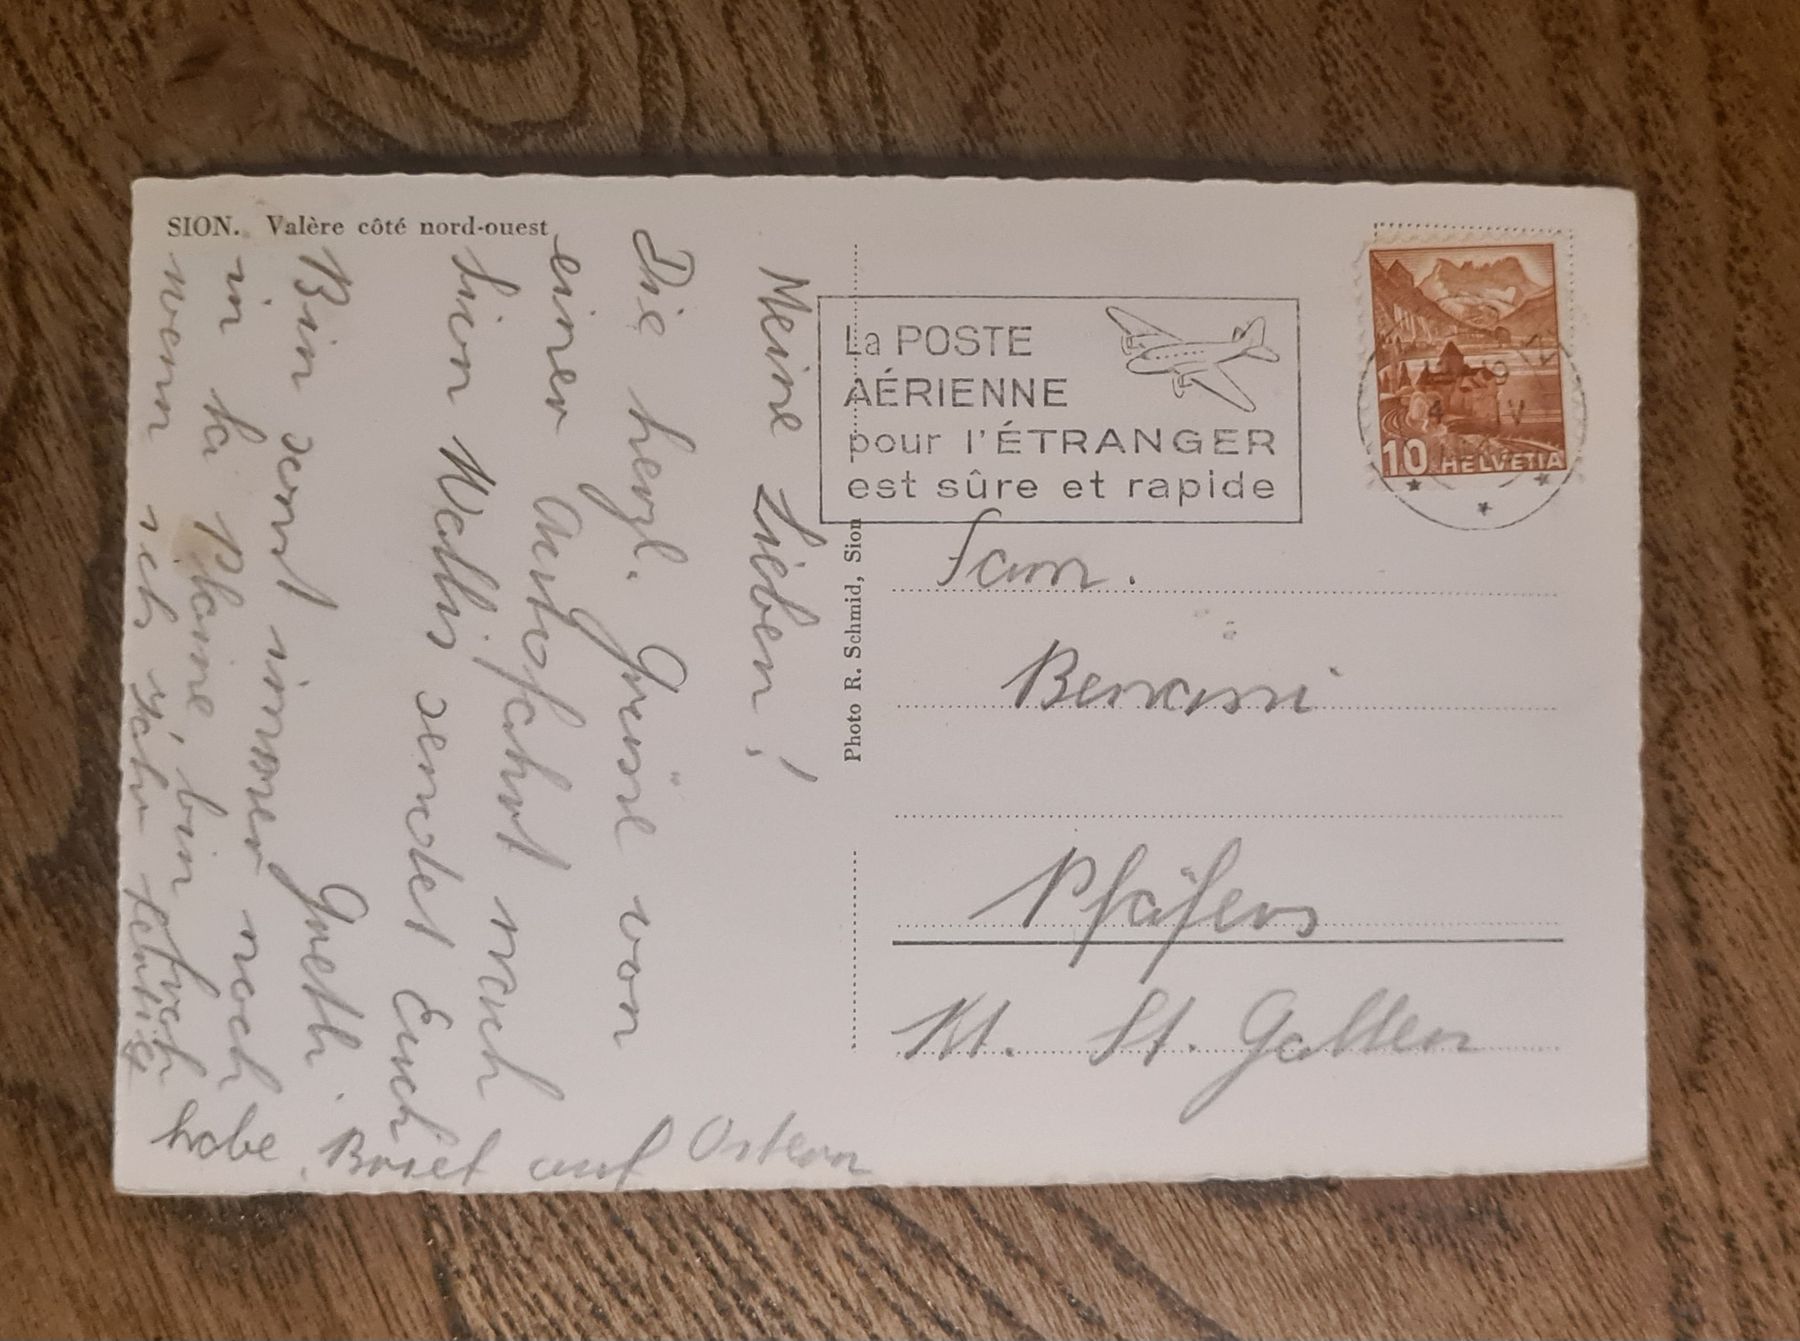 SION. Valère côté nord-ouest
Meine Lieben!
Die herzl. Grüsse von
einer Autofahrt nach
Sion Wallis sendet Euch
Gretli.
Bin sonst immer noch
in La Plaine, bin froh
wenn ich Jahr fertig
habe. Brief auf Ostern
Photo R. Schmid, Sion
La POSTE
AÉRIENNE
pour l'ÉTRANGER
est sûre et rapide
10 HELVETIA
Fam.
Pfäfers
Kt. St. Gallen